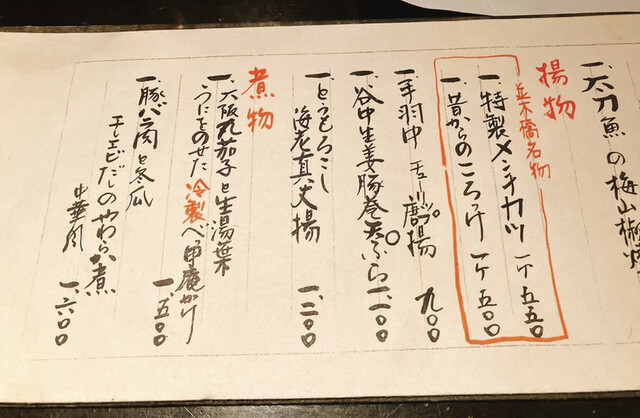 一、太刀魚の梅山椒焼
揚物
並木橋名物
一、特製メンチカツ 一ケ 五五〇
一、昔からのころっけ 一ケ 五〇〇
一、手羽中チューリップ唐揚 九〇〇
一、谷中生姜豚巻天ぷら 一、一〇〇
一、とうもろこし
海老真丈揚 一、二〇〇
煮物
一、大阪丸茄子と生湯葉
うにをのせた 冷製べっ甲庵かけ 一、五〇〇
一、豚バラ肉と冬瓜
干しエビだしのやわらか煮
中華風 一、六〇〇